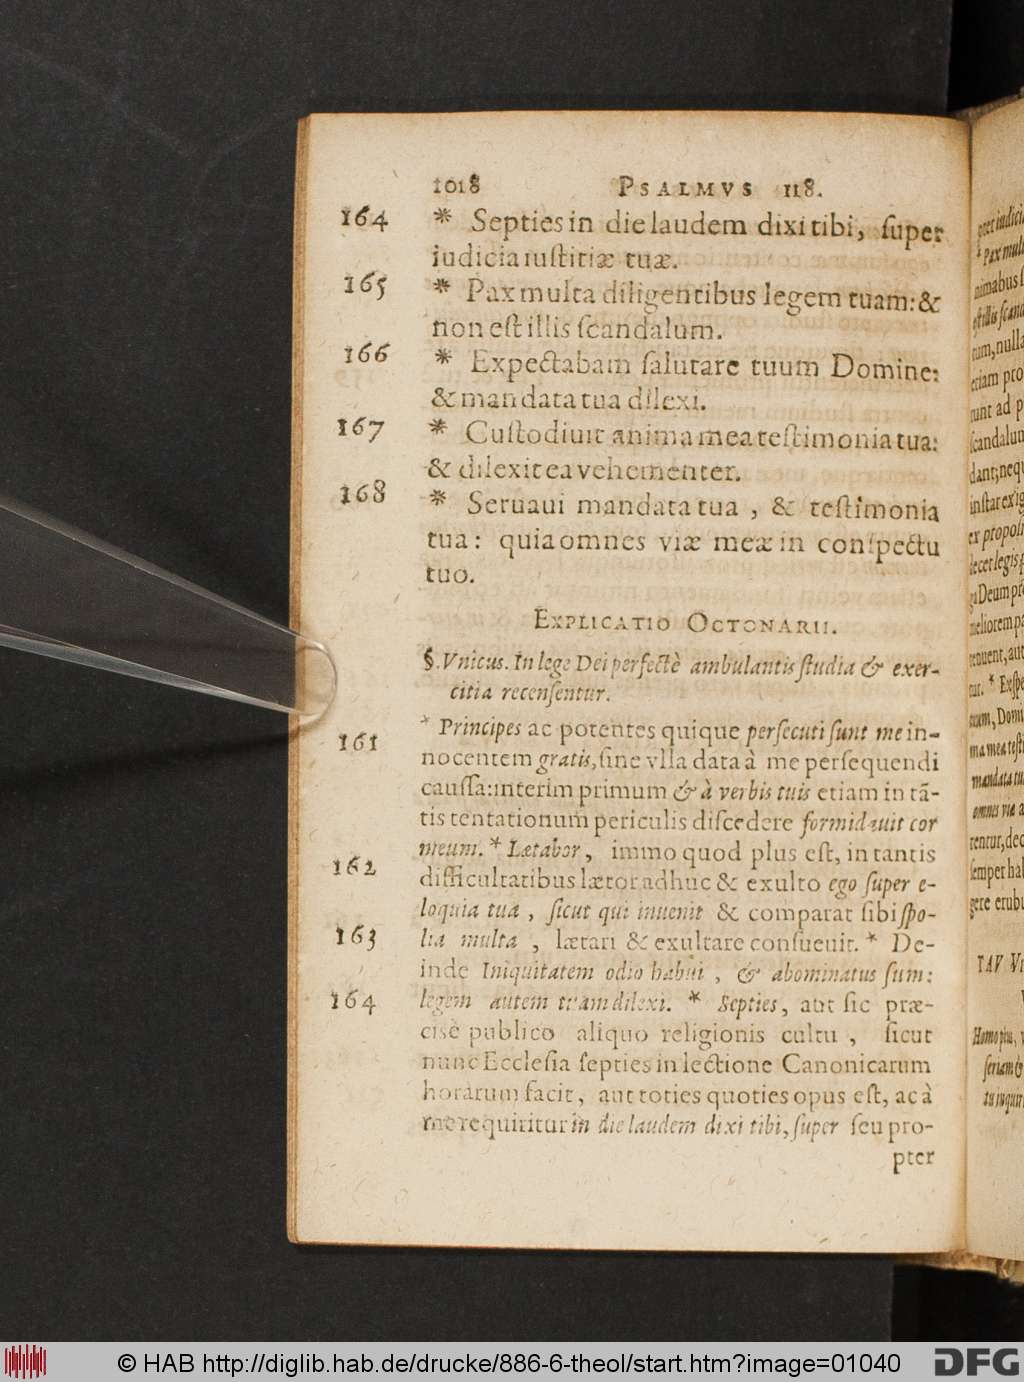 1018 PSALMVS 118.
164 * Septies in die laudem dixi tibi, super
iudicia iustitiæ tuæ.
165 * Pax multa diligentibus legem tuam: &
non est illis scandalum.
166 * Expectabam salutare tuum Domine:
& mandata tua dilexi.
167 * Custodiuit anima mea testimonia tua:
& dilexit ea vehementer.
168 * Seruaui mandata tua, & testimonia
tua: quia omnes viæ meæ in conspectu
tuo.
EXPLICATIO OCTONARII.
§. Vnicus. In lege Dei perfectè ambulantis studia & exer-
citia recensentur.
* Principes ac potentes quique persecuti sunt me in-
161 nocentem gratis, sine vlla data à me persequendi
caussa: interim primum & à verbis tuis etiam in tā-
tis tentationum periculis discedere formidauit cor
meum. * Lætabor, immo quod plus est, in tantis
162 difficultatibus lætor adhuc & exulto ego super e-
loquia tua, sicut qui inuenit & comparat sibi spo-
163 lia multa, lætari & exultare consueuit. * De-
inde Iniquitatem odio habui, & abominatus sum:
164 legem autem tuam dilexi. * Septies, aut sic præ-
cisè publico aliquo religionis cultu, sicut
nunc Ecclesia septies in lectione Canonicarum
horarum facit, aut toties quoties opus est, ac à
me requiritur in die laudem dixi tibi, super seu pro-
pter
© HAB http://diglib.hab.de/drucke/886-6-theol/start.htm?image=01040
DFG